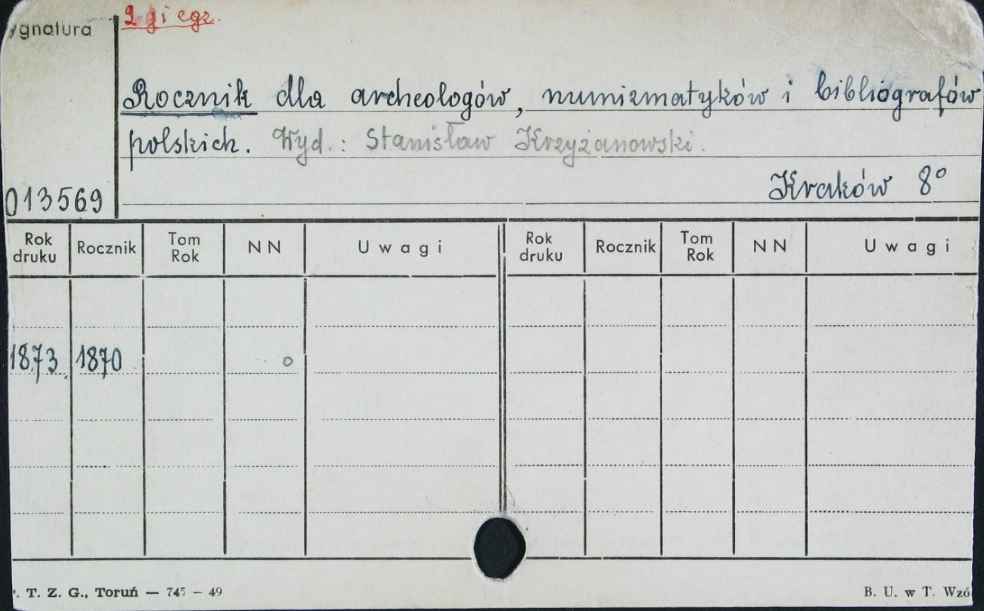 2 gi egz.
ygnatura
Rocznik dla archeologów, numizmatyków i bibliografów
polskich. Wyd.: Stanisław Krzyżanowski.
Kraków 8°
013569
Rok druku Rocznik Tom Rok NN Uwagi Rok druku Rocznik Tom Rok NN Uwagi
1873 1870 o
. T. Z. G., Toruń — 745 – 49 B. U. w T. Wzó